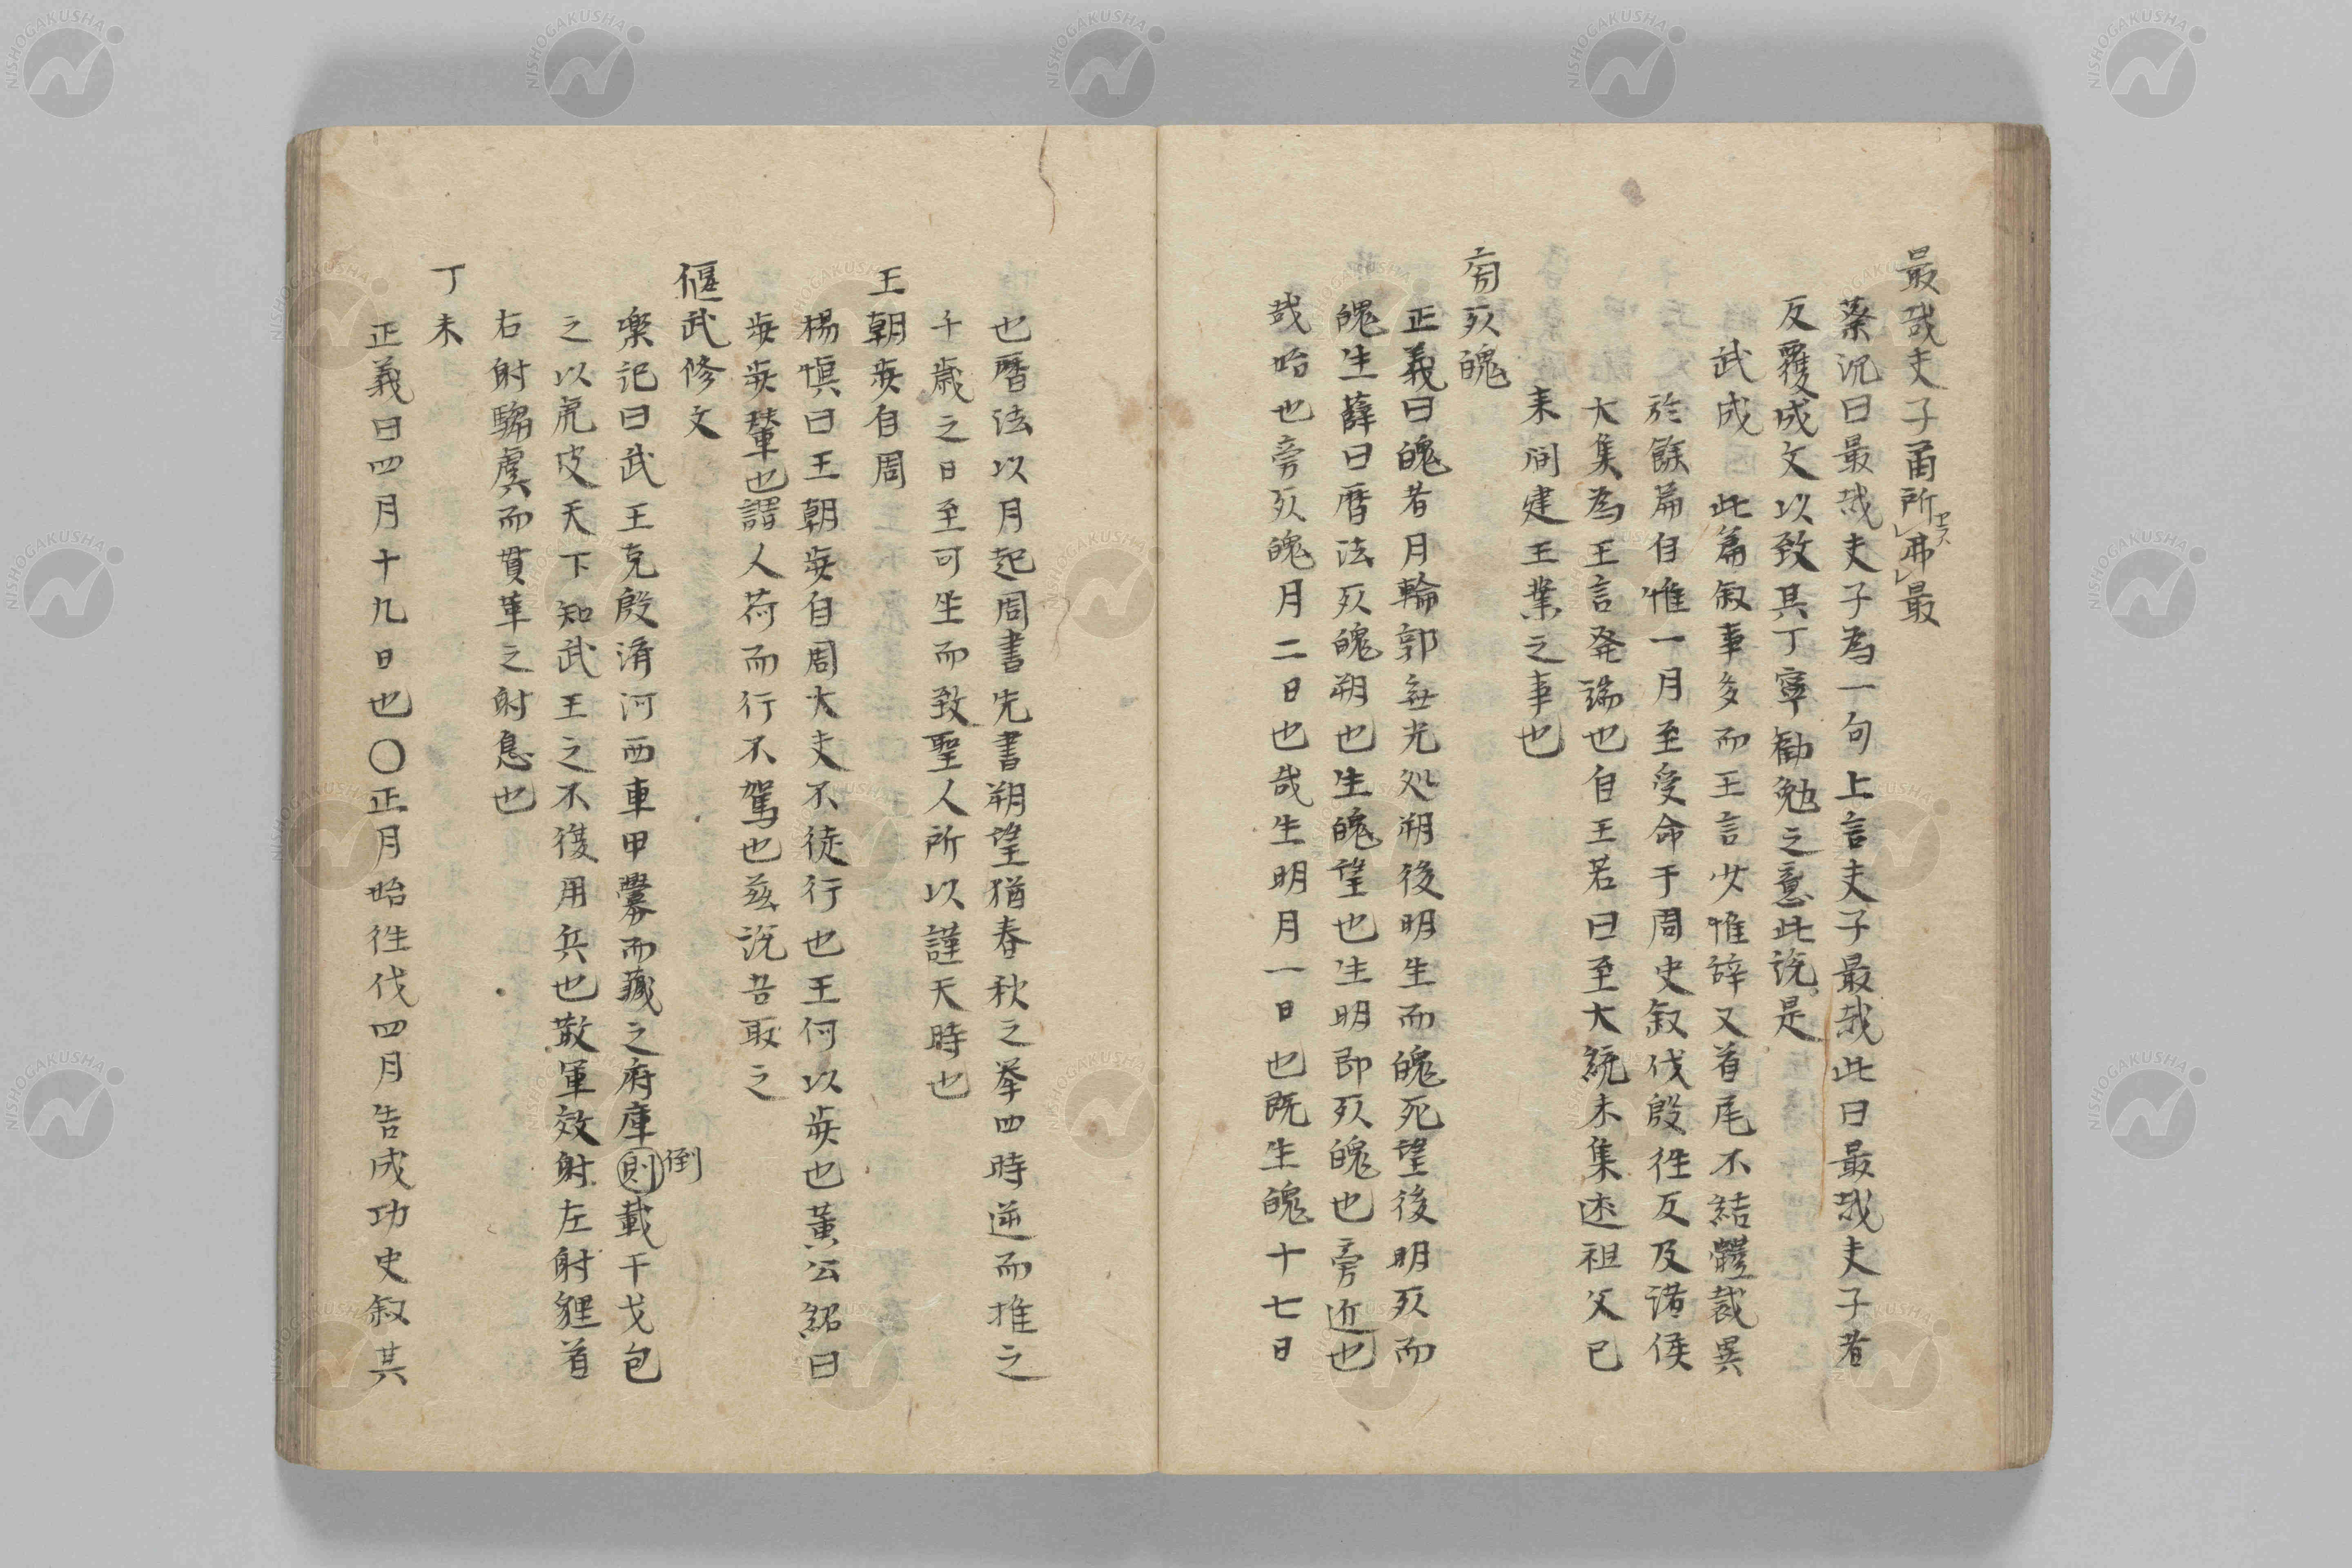 最哉夫子爾所弗最
蔡沉曰最哉夫子為一句上言夫子最哉此曰最哉夫子者
反覆成文以致其丁寧勧勉之意此説是
武成 此篇叙事多而王言少惟辞又首尾不結體裁異
於餘篇自惟一月至受命于周史叙伐殷徃反及諸侯
大集為王言発端也自王若曰至大統未集述祖父已
来開建王業之事也
旁死魄
正義曰魄者月輪郭無光処朔後明生而魄死望後明死而
魄生薛曰暦法死魄朔也生魄望也生明即死魄也旁近也
哉始也旁死魄月二日也哉生明月一日也既生魄十七日
也暦法以月起周書先書朔望猶春秋之挙四時逆而推之
千歳之日至可坐而致聖人所以謹天時也
王朝歩自周
楊慎曰王朝歩自周大夫不徒行也王何以歩也黄公紹曰
歩歩輦也謂人荷而行不駕也茲説吾取之
偃武修文
楽記曰武王克殷済河而西車甲釁而蔵之府庫則載干戈包
倒
之以虎皮天下知武王之不復用兵也散軍效射左射貍首
右射騶虞而貫革之射息也
丁未
正義曰四月十九日也〇正月始徃伐四月告成功史叙其
NISHOGAKUSHA